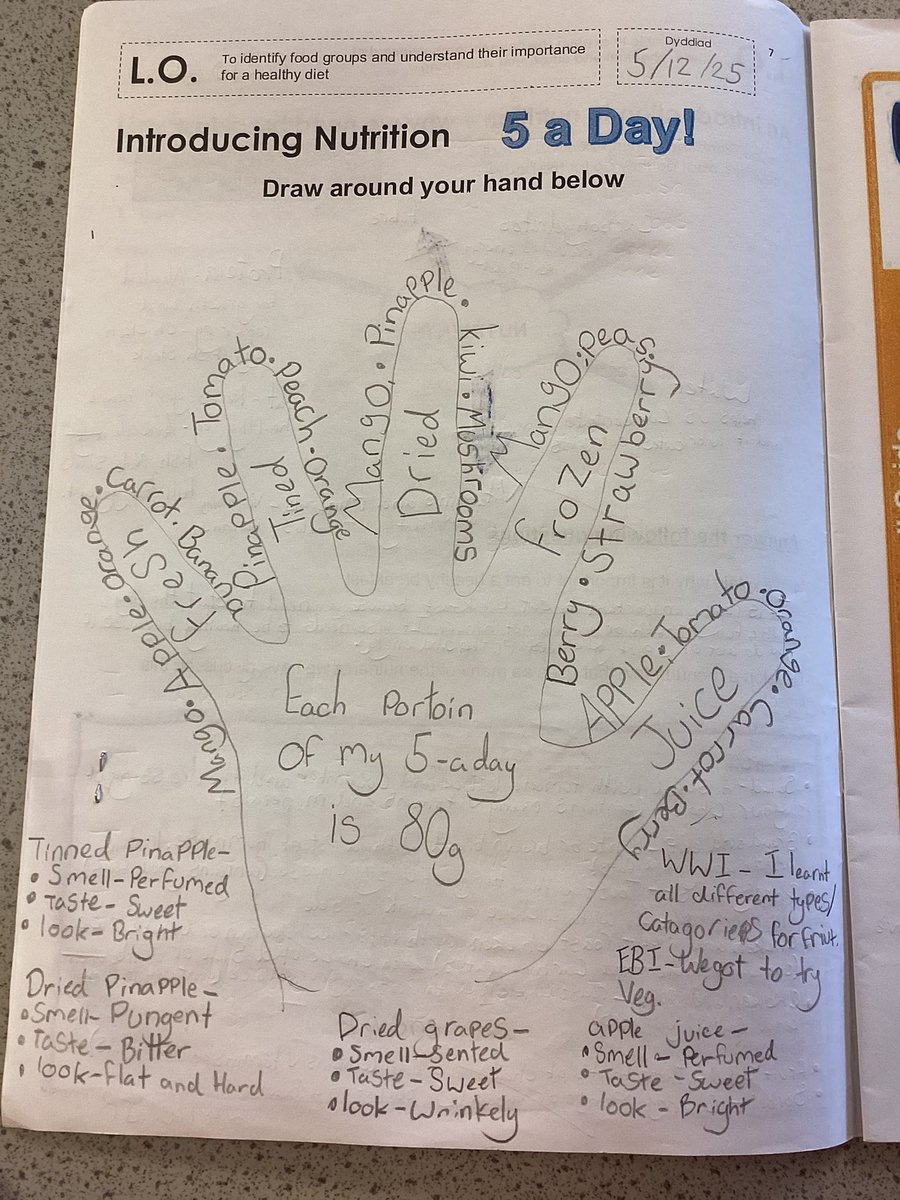 L.O.
To identify food groups and understand their importance
for a healthy diet
Dyddiad
5/12/25
7
Introducing Nutrition
5 a Day!
Draw around your hand below
Mango. Apple. Orange. Carrot. Banana
Fresh
Pinapple. Tomato. Peach. Orange
Tined
Mango. Pinapple. Kiwi. Moshrooms
Dried
Mango; Peas; Strawberry. Berry
Frozen
Apple; Tomato. Orange. Carrot. Berry
Juice
Each Portoin
Of my 5-aday
is 80g
Tinned Pinapple-
• Smell-Perfumed
• Taste- Sweet
• look- Bright
Dried Pinapple-
• Smell- Pungent
• Taste- Bitter
• look-flat and Hard
Dried grapes-
• Smell-sented
• Taste- Sweet
• look- Wrinkely
WWI - I learnt
all different types/
Catagories for friut.
EBI-We got to try
Veg.
apple juice-
• Smell- Perfumed
• Taste -Sweet
• look - Bright